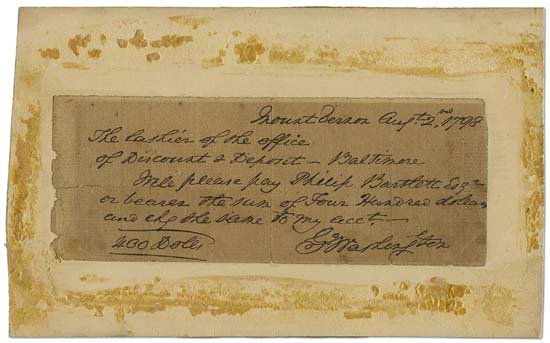 Mount Vernon Augt. 2nd. 1798
The Cashier of the office
of Discount & Deposit – Baltimore
Will please pay Philip Bartlett Esqr
or bearer the sum of Four Hundred dollars
and chg the same to my acct. –
400 Dolls
Go Washington